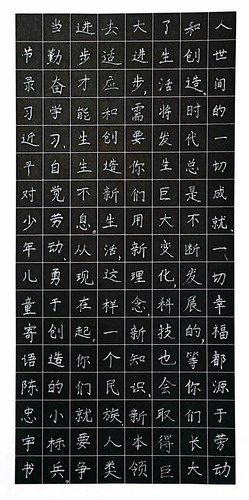 人世间的一切成就、一切幸福都源于劳动
和创造。时代总是不断发展的,等你们长大
了生活将发生巨大变化,科技也会取得巨
大进步,需要你们用新理念、新知识、新本领
去适应和创造新生活,这样一个民族、人类
进步才能生生不息。从现在起,你们就要争
当勤奋学习、自觉劳动、勇于创造的小标兵。
节录习近平对少年儿童寄语陈忠宇书